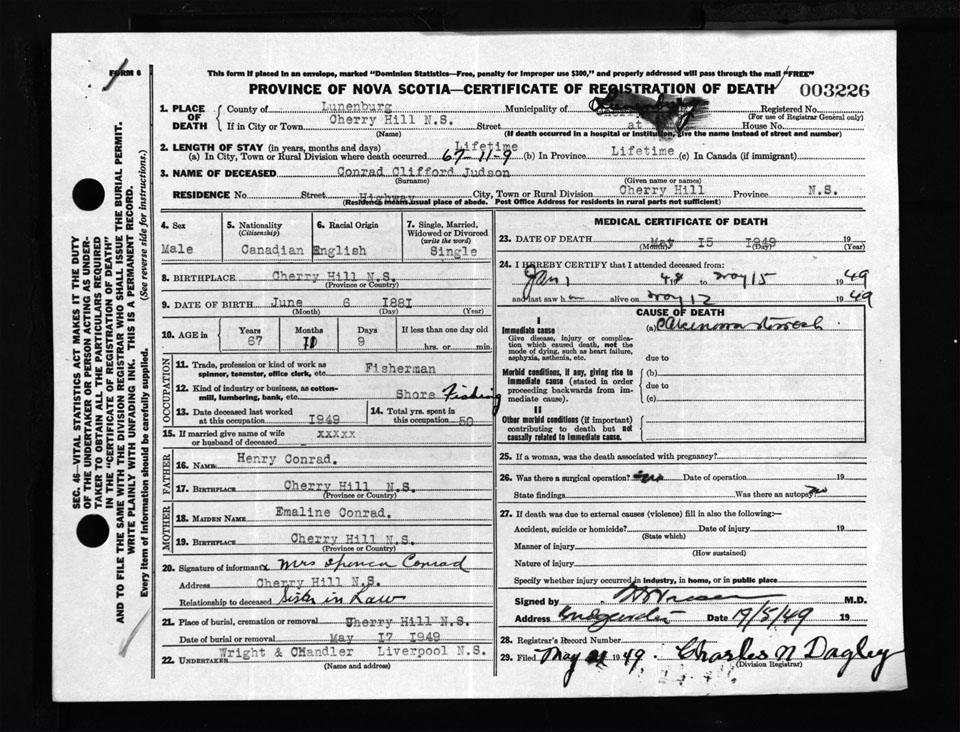 FORM 6
This form if placed in an envelope, marked "Dominion Statistics—Free, penalty for improper use $300," and properly addressed will pass through the mail "FREE"
PROVINCE OF NOVA SCOTIA—CERTIFICATE OF REGISTRATION OF DEATH
003226
1. PLACE OF DEATH
County of Lunenburg Municipality of Registered No.
(For use of Registrar General only)
If in City or Town Cherry Hill N.S. Street at House No.
(Name) (If death occurred in a hospital or institution, give the name instead of street and number)
2. LENGTH OF STAY (in years, months and days)
(a) In City, Town or Rural Division where death occurred Lifetime 67-11-9 (b) In Province Lifetime (c) In Canada (if immigrant)
3. NAME OF DECEASED Conrad Clifford Judson
(Surname) (Given name or names)
RESIDENCE No. Street Highway City, Town or Rural Division Cherry Hill Province N.S.
(Residence means usual place of abode. Post Office Address for residents in rural parts not sufficient)
4. Sex
Male
5. Nationality
(Citizenship)
Canadian
6. Racial Origin
English
7. Single, Married, Widowed or Divorced
(write the word)
Single
8. BIRTHPLACE Cherry Hill N.S.
(Province or Country)
9. DATE OF BIRTH June 6 1881
(Month) (Day) (Year)
10. AGE in
Years Months Days If less than one day old
67 9 hrs. or min.
OCCUPATION
11. Trade, profession or kind of work as spinner, teamster, office clerk, etc. Fisherman
12. Kind of industry or business, as cotton-mill, lumbering, bank, etc. Shore Fishing
13. Date deceased last worked at this occupation 1949
14. Total yrs. spent in this occupation 50
15. If married give name of wife or husband of deceased xxxxx
FATHER
16. NAME Henry Conrad.
17. BIRTHPLACE Cherry Hill N.S.
(Province or Country)
MOTHER
18. MAIDEN NAME Emaline Conrad.
19. BIRTHPLACE Cherry Hill N.S.
(Province or Country)
20. Signature of informant x Mrs Spencer Conrad
Address Cherry Hill N.S.
Relationship to deceased Sister in Law
21. Place of burial, cremation or removal Cherry Hill N.S.
Date of burial or removal May 17 1949
22. UNDERTAKER Wright & CHandler Liverpool N.S.
(Name and address)
MEDICAL CERTIFICATE OF DEATH
23. DATE OF DEATH May 15 1949 19
(Month) (Day) (Year)
24. I HEREBY CERTIFY that I attended deceased from:
Jan 1 48 to May 15 1949
and last saw h m alive on May 12 1949
CAUSE OF DEATH
I
Immediate cause
Give disease, injury or complication which caused death, not the mode of dying, such as heart failure, asphyxia, asthenia, etc.
(a) Carcinoma stomach
due to
Morbid conditions, if any, giving rise to immediate cause (stated in order proceeding backwards from immediate cause).
(b)
due to
(c)
II
Other morbid conditions (if important) contributing to death but not causally related to immediate cause.
25. If a woman, was the death associated with pregnancy?
26. Was there a surgical operation? no Date of operation 19
State findings Was there an autopsy? no
27. If death was due to external causes (violence) fill in also the following:—
Accident, suicide or homicide? Date of injury 19
(State which)
Manner of injury
(How sustained)
Nature of injury
Specify whether injury occurred in industry, in home, or in public place
Signed by M.D.
Address Bridgewater Date 19/5/49 19
28. Registrar's Record Number
29. Filed May 21 1949. Charles N Dagley
(Division Registrar)
SEC. 46—VITAL STATISTICS ACT MAKES IT THE DUTY
OF THE UNDERTAKER OR PERSON ACTING AS UNDER-
TAKER TO OBTAIN ALL THE PARTICULARS REQUIRED
IN THE "CERTIFICATE OF REGISTRATION OF DEATH"
AND TO FILE THE SAME WITH THE DIVISION REGISTRAR WHO SHALL ISSUE THE BURIAL PERMIT.
WRITE PLAINLY WITH UNFADING INK. THIS IS A PERMANENT RECORD.
Every item of information should be carefully supplied. (See reverse side for instructions.)